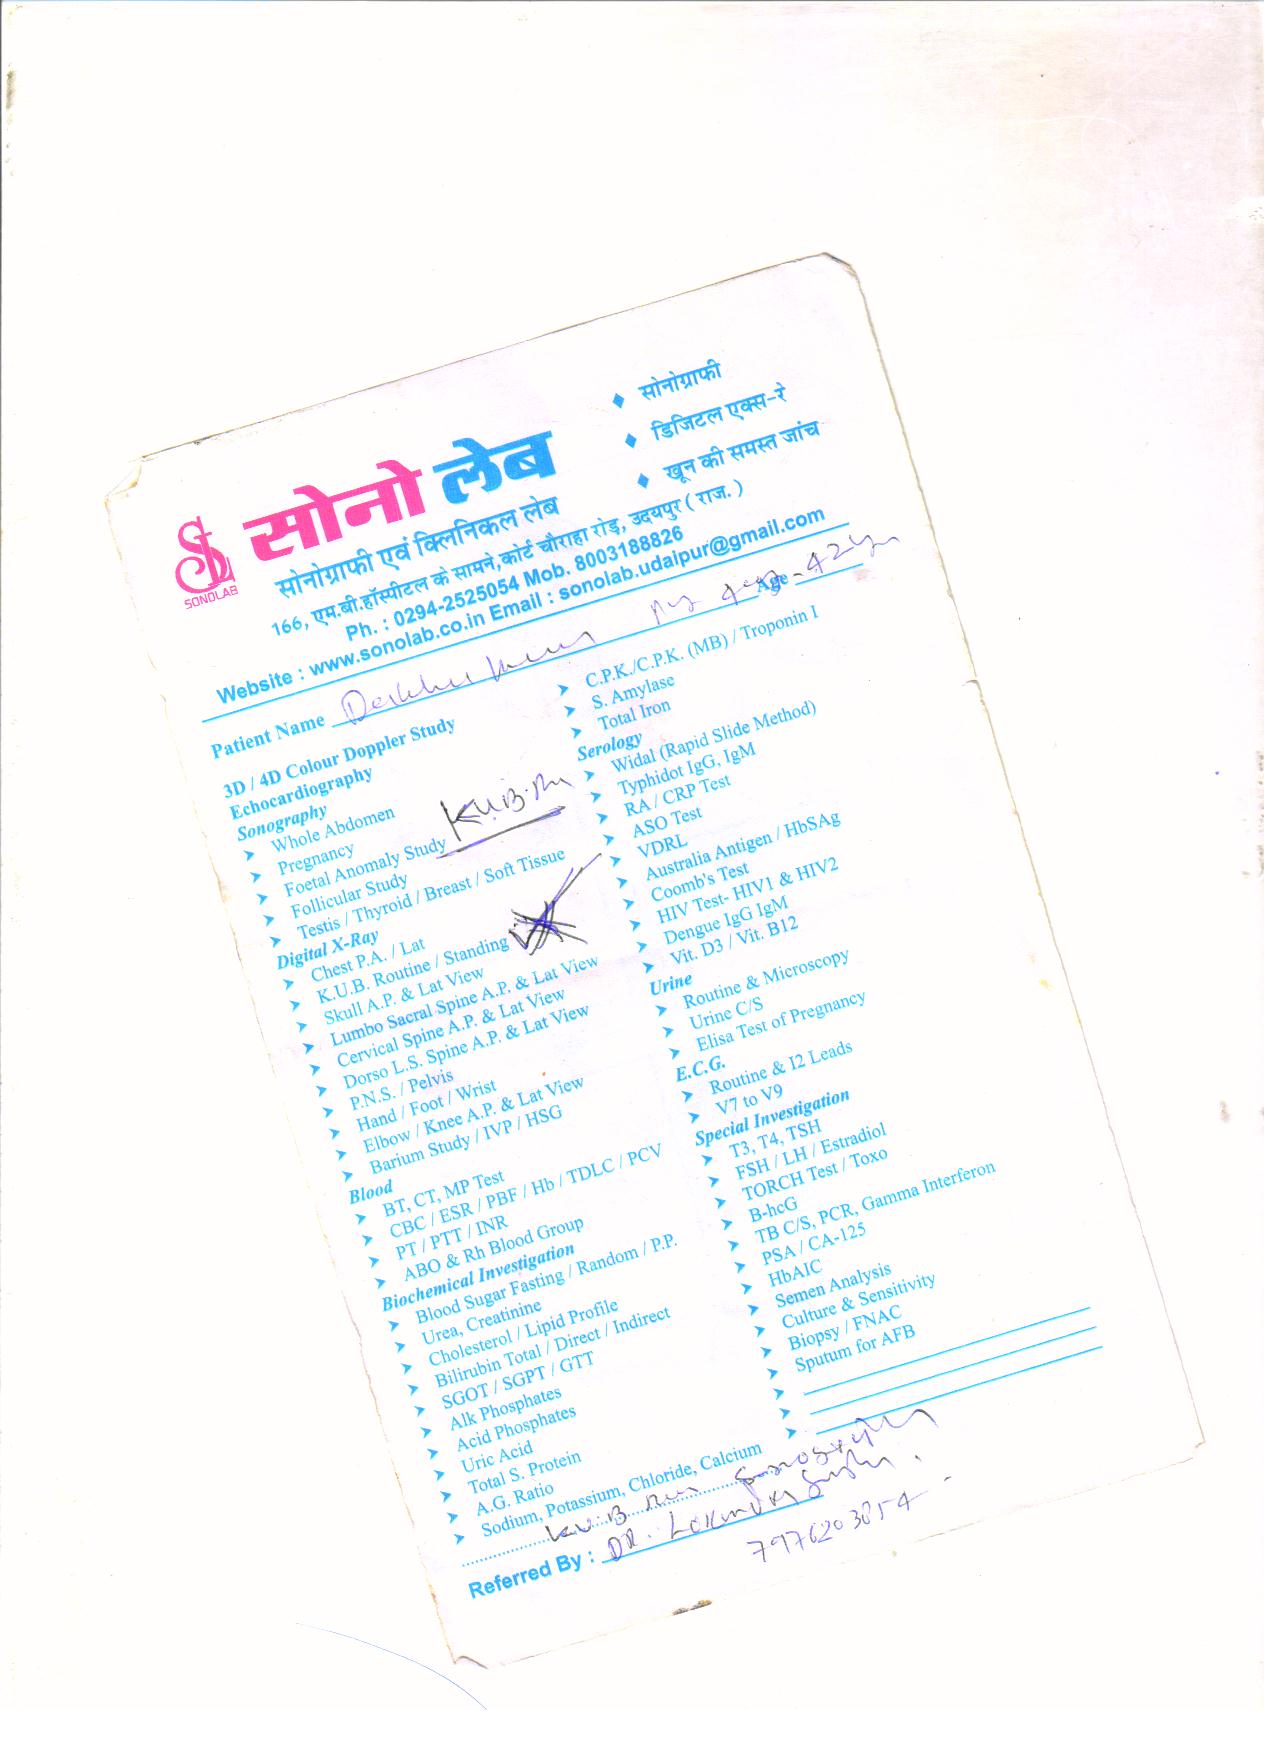 सोनो लेब
SONOLAB
सोनोग्राफी एवं क्लिनिकल लेब
सोनोग्राफी
डिजिटल एक्स-रे
खून की समस्त जांच
166, एम.बी.हॉस्पीटल के सामने,कोर्ट चौराहा रोड़, उदयपुर ( राज. )
Ph. : 0294-2525054 Mob. 8003188826
Website : www.sonolab.co.in Email : sonolab.udaipur@gmail.com
Patient Name Age 42
3D / 4D Colour Doppler Study
Echocardiography
Sonography
Whole Abdomen
Pregnancy
Foetal Anomaly Study
K.U.B.
Follicular Study
Testis / Thyroid / Breast / Soft Tissue
Digital X-Ray
Chest P.A. / Lat
K.U.B. Routine / Standing
Skull A.P. & Lat View
Lumbo Sacral Spine A.P. & Lat View
Cervical Spine A.P. & Lat View
Dorso L.S. Spine A.P. & Lat View
P.N.S. / Pelvis
Hand / Foot / Wrist
Elbow / Knee A.P. & Lat View
Barium Study / IVP / HSG
Blood
BT, CT, MP Test
CBC / ESR / PBF / Hb / TDLC / PCV
PT / PTT / INR
ABO & Rh Blood Group
Biochemical Investigation
Blood Sugar Fasting / Random / P.P.
Urea, Creatinine
Cholesterol / Lipid Profile
Bilirubin Total / Direct / Indirect
SGOT / SGPT / GTT
Alk Phosphates
Acid Phosphates
Uric Acid
Total S. Protein
A.G. Ratio
Sodium, Potassium, Chloride, Calcium
C.P.K./C.P.K. (MB) / Troponin I
S. Amylase
Total Iron
Serology
Widal (Rapid Slide Method)
Typhidot IgG, IgM
RA / CRP Test
ASO Test
VDRL
Australia Antigen / HbSAg
Coomb's Test
HIV Test- HIV1 & HIV2
Dengue IgG IgM
Vit. D3 / Vit. B12
Urine
Routine & Microscopy
Urine C/S
Elisa Test of Pregnancy
E.C.G.
Routine & I2 Leads
V7 to V9
Special Investigation
T3, T4, TSH
FSH / LH / Estradiol
TORCH Test / Toxo
B-hcG
TB C/S, PCR, Gamma Interferon
PSA / CA-125
HbAIC
Semen Analysis
Culture & Sensitivity
Biopsy / FNAC
Sputum for AFB
K.U.B
Referred By : DR.
7976203854